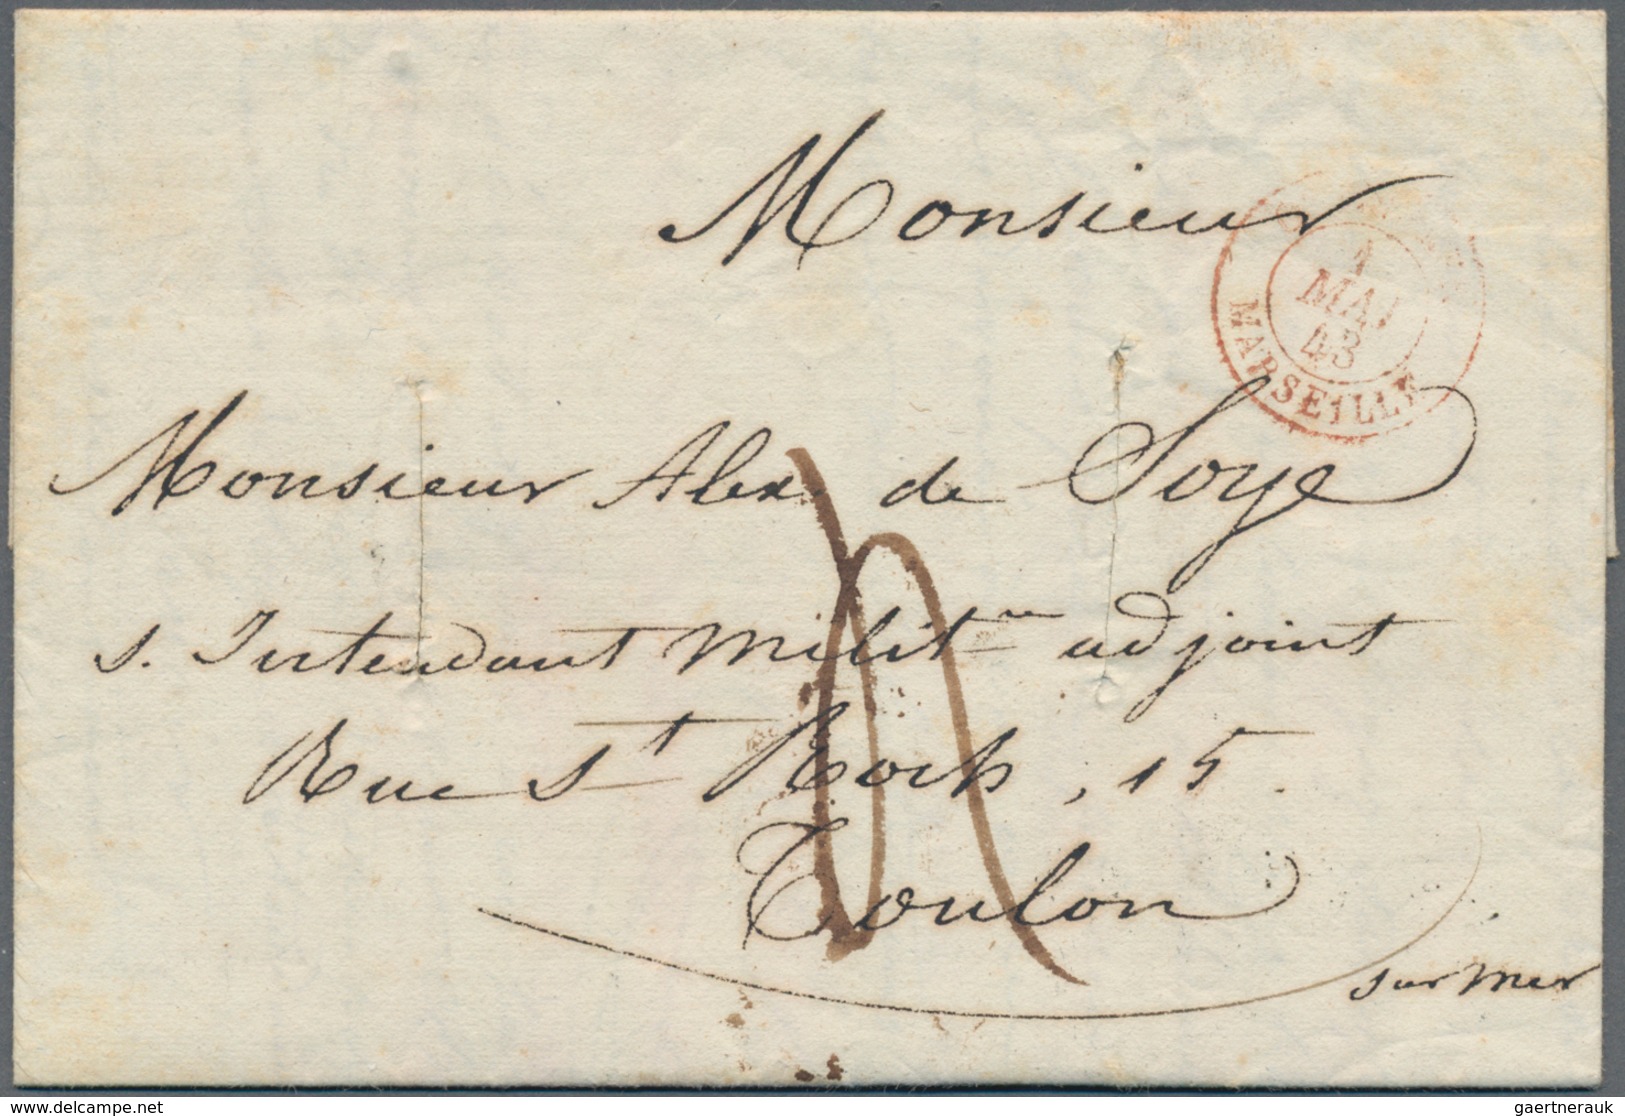 Monsieur
1
MAI
43
MARSEILLE
Monsieur Alex. de Soye
s. Intendant Milit.re adjoint
Rue St Roch, 15.
Toulon
sur mer
delcampe.net
gaertnerauk